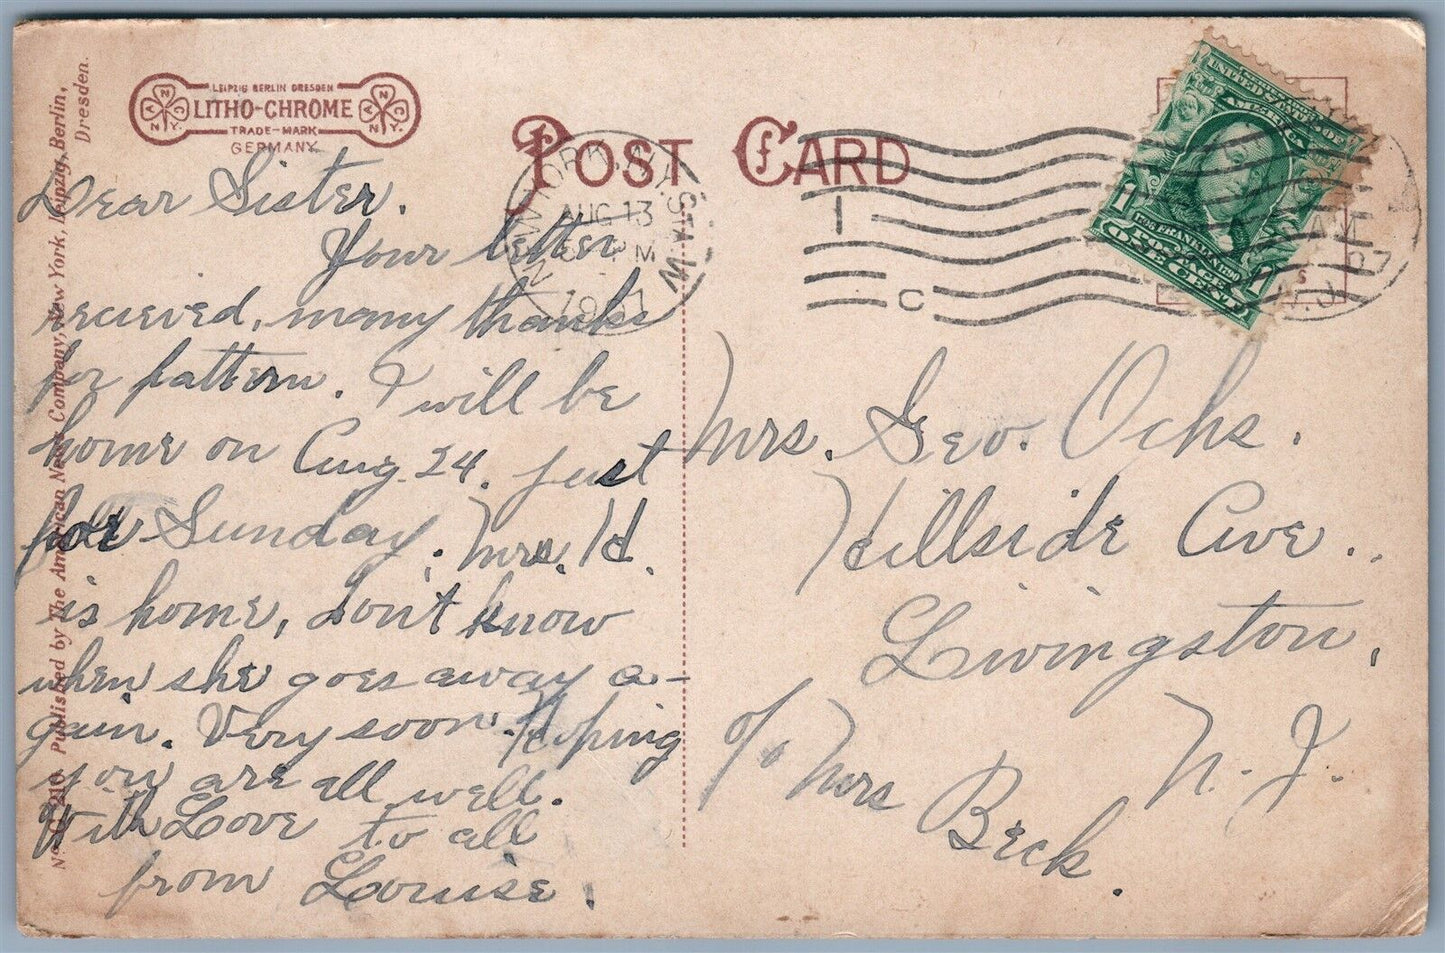 LEIPZIG BERLIN DRESDEN
LITHO-CHROME
TRADE-MARK
GERMANY
POST CARD
NEW YORK, N.Y.
AUG 13
PM
1907
1
C
UNITED STATES OF
AMERICA
1706 FRANKLIN 1790
POSTAGE
ONE CENT
AM
07
N.J.
Dear Sister.
Your letter
recieved, many thanks
for pattern. I will be
home on Aug 24. just
for Sunday. Mrs. H.
is home, don't know
when she goes away a-
gain. Very soon. Hoping
you are all well.
With Love to all
from Louise.
Mrs. Geo. Ochs.
Hillside Ave.
Livingston,
N. J.
c/o Mrs
Beck.
No. G 210. Published by The American News Company, New York, Leipzig, Berlin,
Dresden.